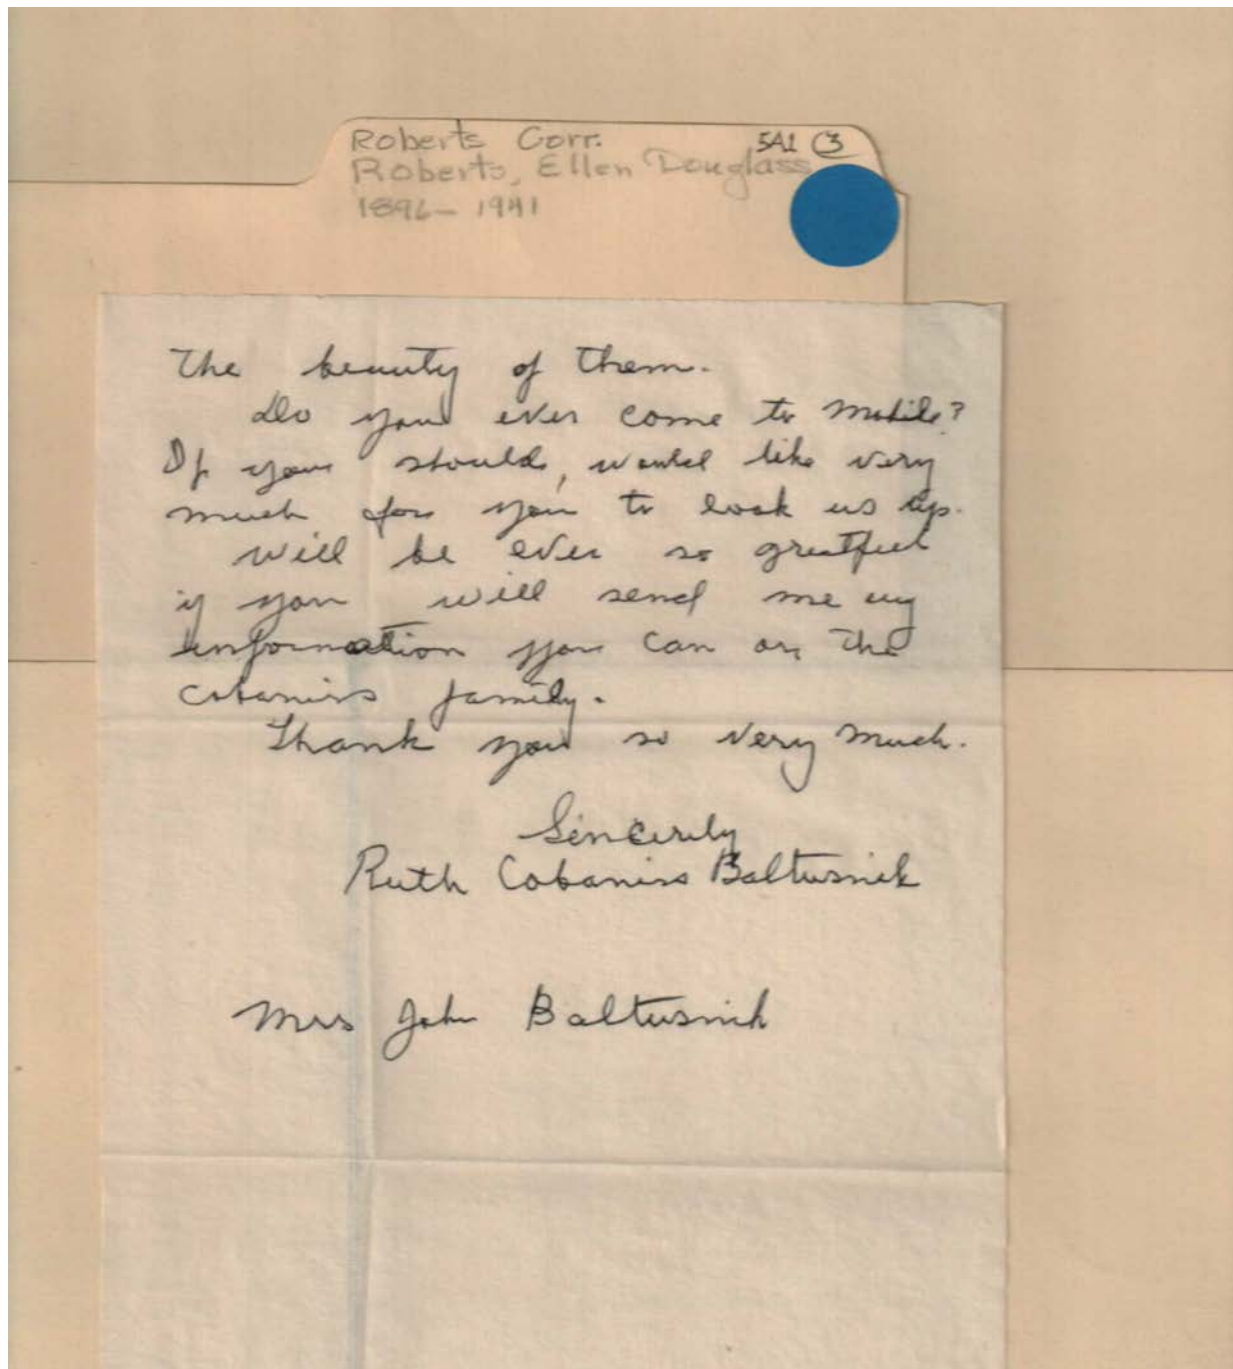 Roberts Corr. 5A1 3
Roberts, Ellen Douglass
1896-1941
the beauty of them.
Do you ever come to Mobile?
If you should, would like very
much for you to look us up.
Will be ever so greatful
if you will send me any
information you can on the
Cobaniss family.
Thank you so very much.
Sincerely
Ruth Cobaniss Baltusnik
Mrs John Baltusnik